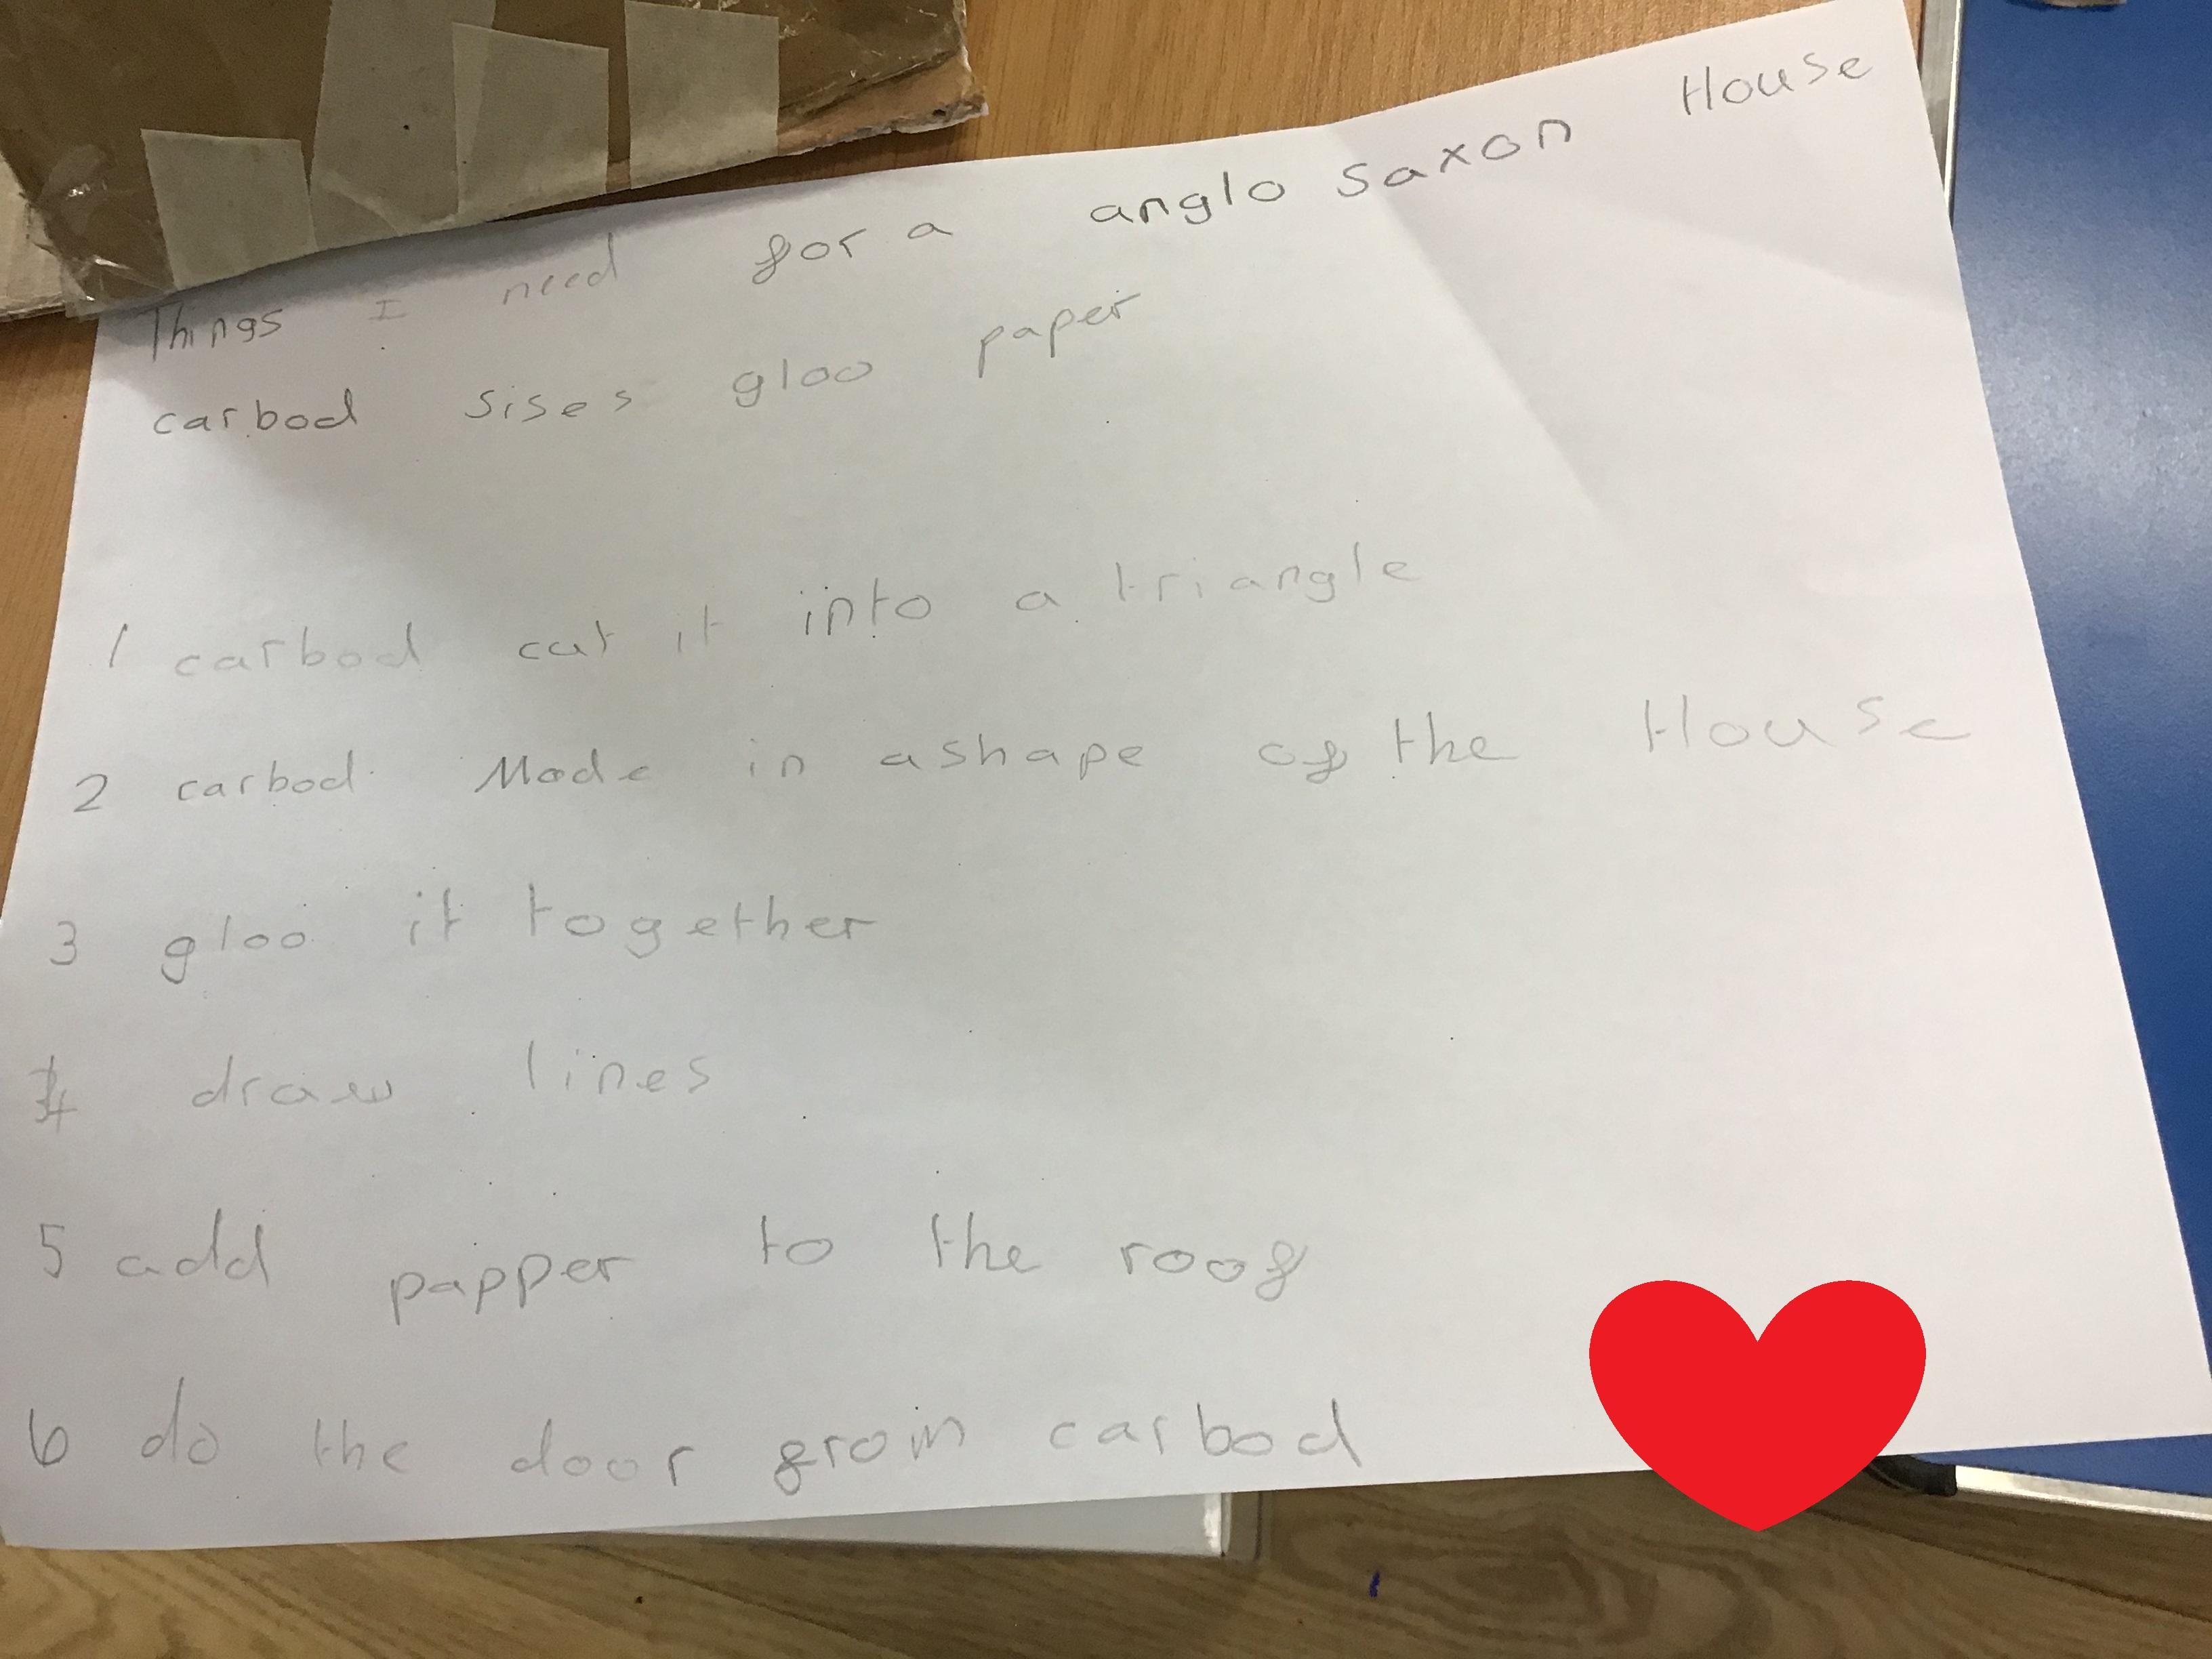 Things I need for a anglo saxon House
carbod sises gloo paper
1 carbod cut it into a triangle
2 carbod Made in a shape of the House
3 gloo it together
4 draw lines
5 add papper to the roof
6 do the door from carbod